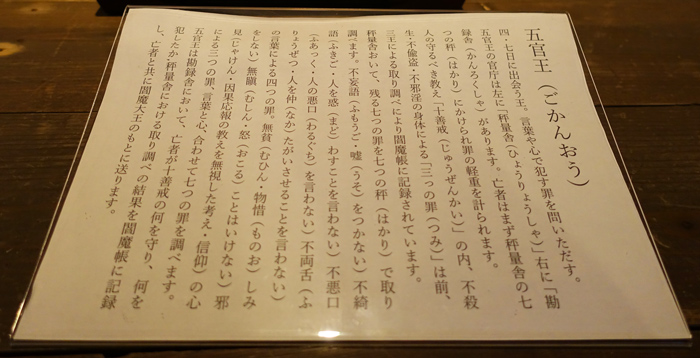 五官王（ごかんおう）
四・七日に出会う王。言葉や心で犯す罪を問いただす。
五官王の官庁は左に「秤量舎（ひょうりょうしゃ）」右に「勘
録舎（かんろくしゃ）があります。亡者はまず秤量舎の七
つの秤（はかり）にかけられ罪の軽重を計られます。
人の守るべき教え「十善戒（じゅうぜんかい）」の内、不殺
生・不偸盗・不邪淫の身体による「三つの罪（つみ）」は前、
三王による取り調べにより閻魔帳に記録されています。
秤量舎おいて、残る七つの罪を七つの秤（はかり）で取り
調べます。不妄語（ふもうご・嘘（うそ）をつかない）不綺
語（ふきご・人を惑（まど）わすことを言わない）不悪口
（ふあっく・人の悪口（わるぐち）を言わない）不両舌（ふ
りょうぜつ・人を仲（なか）たがいさせることを言わない）
の言葉による四つの罪。無貧（むひん・物惜（ものお）しみ
をしない）無瞋（むしん・怒（おこる）ことはいけない）邪
見（じゃけん・因果応報の教えを無視した考え・信仰）の心
による三つの罪、言葉と心、合わせて七つの罪を調べます。
五官王は勘録舎において、亡者が十善戒の何を守り、何を
犯したか・秤量舎における取り調べの結果を閻魔帳に記録
し、亡者と共に閻魔大王のもとに送ります。